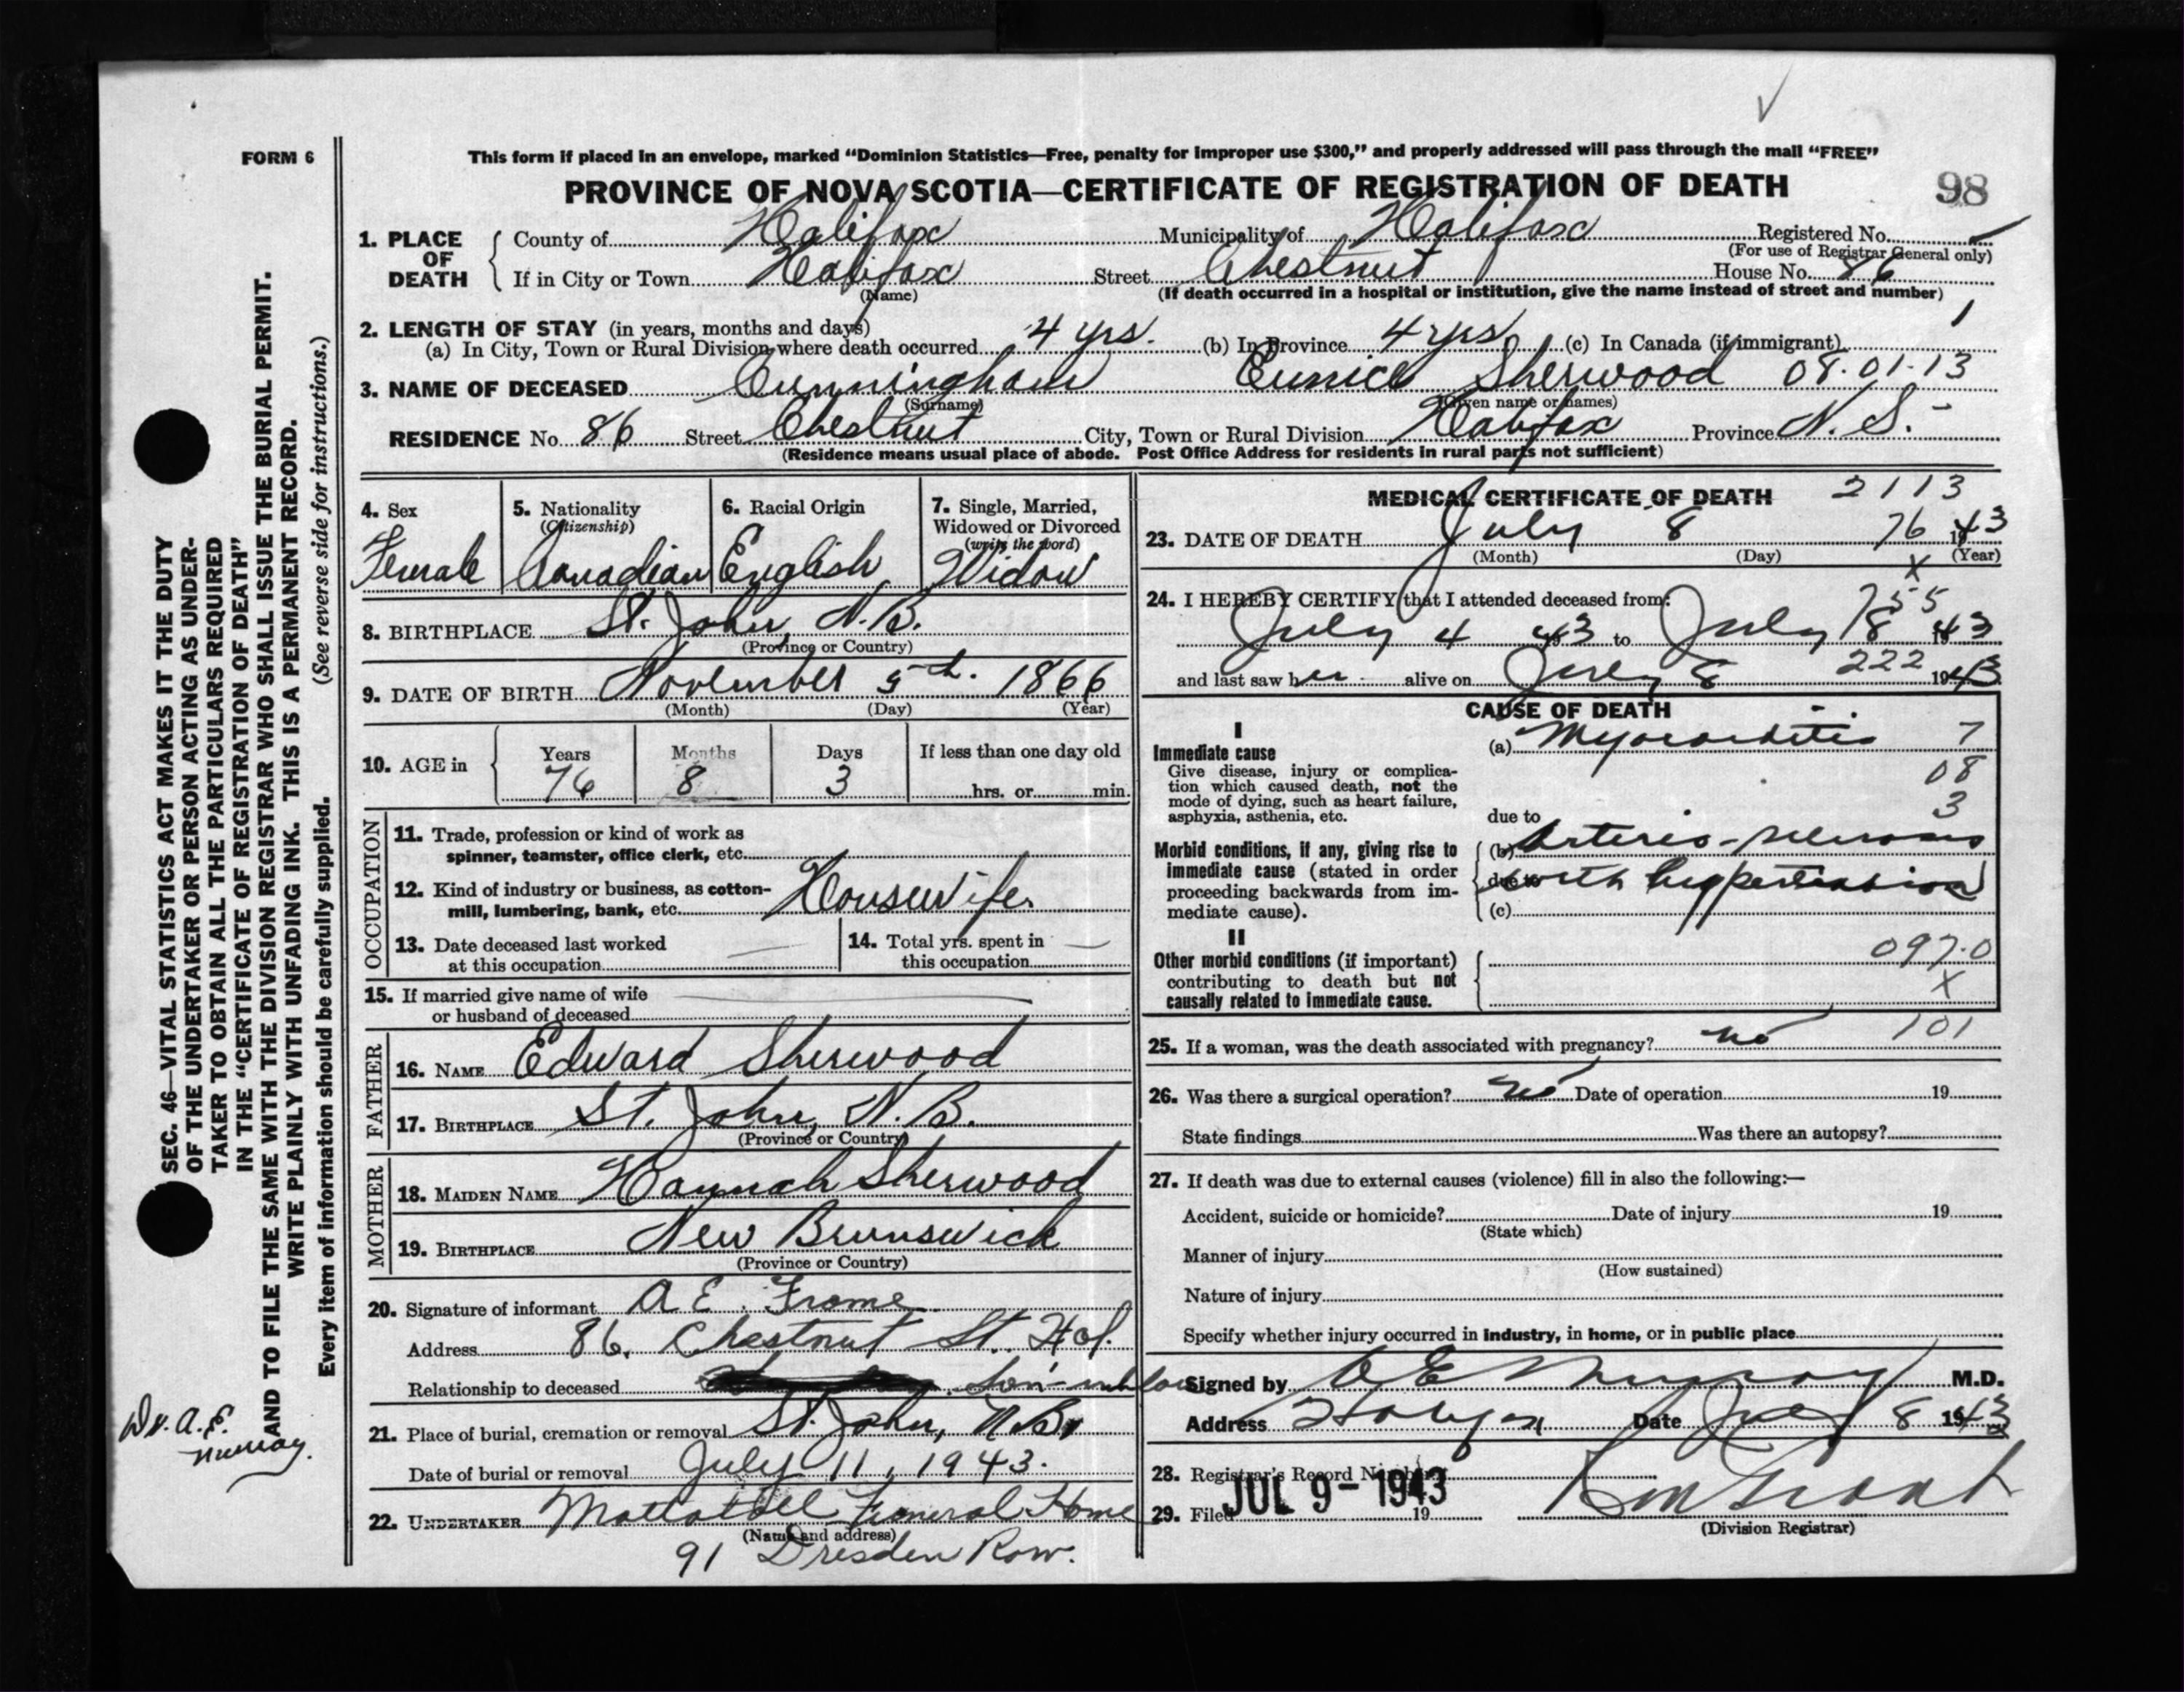 FORM 6
This form if placed in an envelope, marked “Dominion Statistics—Free, penalty for improper use $300,” and properly addressed will pass through the mail “FREE”
PROVINCE OF NOVA SCOTIA—CERTIFICATE OF REGISTRATION OF DEATH
98
1. PLACE OF DEATH
County of Halifax Municipality of Halifax Registered No.
(For use of Registrar General only)
If in City or Town Halifax Street Chestnut House No. 86
(Name) (If death occurred in a hospital or institution, give the name instead of street and number)
2. LENGTH OF STAY (in years, months and days)
(a) In City, Town or Rural Division where death occurred 4 yrs. (b) In Province 4 yrs. (c) In Canada (if immigrant)
3. NAME OF DECEASED Cunningham Eunice Sherwood 08.01.13
(Surname) (Given name or names)
RESIDENCE No. 86 Street Chestnut City, Town or Rural Division Halifax Province N.S.
(Residence means usual place of abode. Post Office Address for residents in rural parts not sufficient)
4. Sex
Female
5. Nationality
(Citizenship)
Canadian
6. Racial Origin
English
7. Single, Married,
Widowed or Divorced
(write the word)
Widow
8. BIRTHPLACE St. John, N.B.
(Province or Country)
9. DATE OF BIRTH November 5th. 1866
(Month) (Day) (Year)
10. AGE in
Years Months Days If less than one day old
76 8 3 hrs. or min.
OCCUPATION
11. Trade, profession or kind of work as
spinner, teamster, office clerk, etc.
12. Kind of industry or business, as cotton-
mill, lumbering, bank, etc. Housewife
13. Date deceased last worked
at this occupation
14. Total yrs. spent in
this occupation
15. If married give name of wife
or husband of deceased
FATHER
16. NAME Edward Sherwood
17. BIRTHPLACE St. John, N.B.
(Province or Country)
MOTHER
18. MAIDEN NAME Hannah Sherwood
19. BIRTHPLACE New Brunswick
(Province or Country)
20. Signature of informant A E. Frome
Address 86, Chestnut St. Hal.
Relationship to deceased Son-in-law
21. Place of burial, cremation or removal St. John, N.B.
Date of burial or removal July 11, 1943.
22. UNDERTAKER Mattatall Funeral Home
(Name and address)
91 Dresden Row.
MEDICAL CERTIFICATE OF DEATH 2113
23. DATE OF DEATH July 8 76 1943
(Month) (Day) (Year)
X
24. I HEREBY CERTIFY that I attended deceased from: 755
July 4 43 to July 8 1943
and last saw her alive on July 8 222 1943
CAUSE OF DEATH
I
Immediate cause
Give disease, injury or complica-
tion which caused death, not the
mode of dying, such as heart failure,
asphyxia, asthenia, etc.
(a) Myocarditis 7
08
3
due to
Morbid conditions, if any, giving rise to
immediate cause (stated in order
proceeding backwards from im-
mediate cause).
(b) Arterio-sclerosis
due to with hypertension
(c)
II
Other morbid conditions (if important)
contributing to death but not
causally related to immediate cause.
097.0
X
101
25. If a woman, was the death associated with pregnancy? no
26. Was there a surgical operation? no Date of operation 19
State findings Was there an autopsy?
27. If death was due to external causes (violence) fill in also the following:—
Accident, suicide or homicide? Date of injury 19
(State which)
Manner of injury
(How sustained)
Nature of injury
Specify whether injury occurred in industry, in home, or in public place
Signed by A E Murray M.D.
Address Halifax Date July 8 1943
28. Registrar's Record Number
29. Filed JUL 9 - 1943 19
(Division Registrar)
SEC. 46—VITAL STATISTICS ACT MAKES IT THE DUTY
OF THE UNDERTAKER OR PERSON ACTING AS UNDER-
TAKER TO OBTAIN ALL THE PARTICULARS REQUIRED
IN THE “CERTIFICATE OF REGISTRATION OF DEATH”
AND TO FILE THE SAME WITH THE DIVISION REGISTRAR WHO SHALL ISSUE THE BURIAL PERMIT.
WRITE PLAINLY WITH UNFADING INK. THIS IS A PERMANENT RECORD.
Every item of information should be carefully supplied. (See reverse side for instructions.)
Dr. A. E.
Murray.